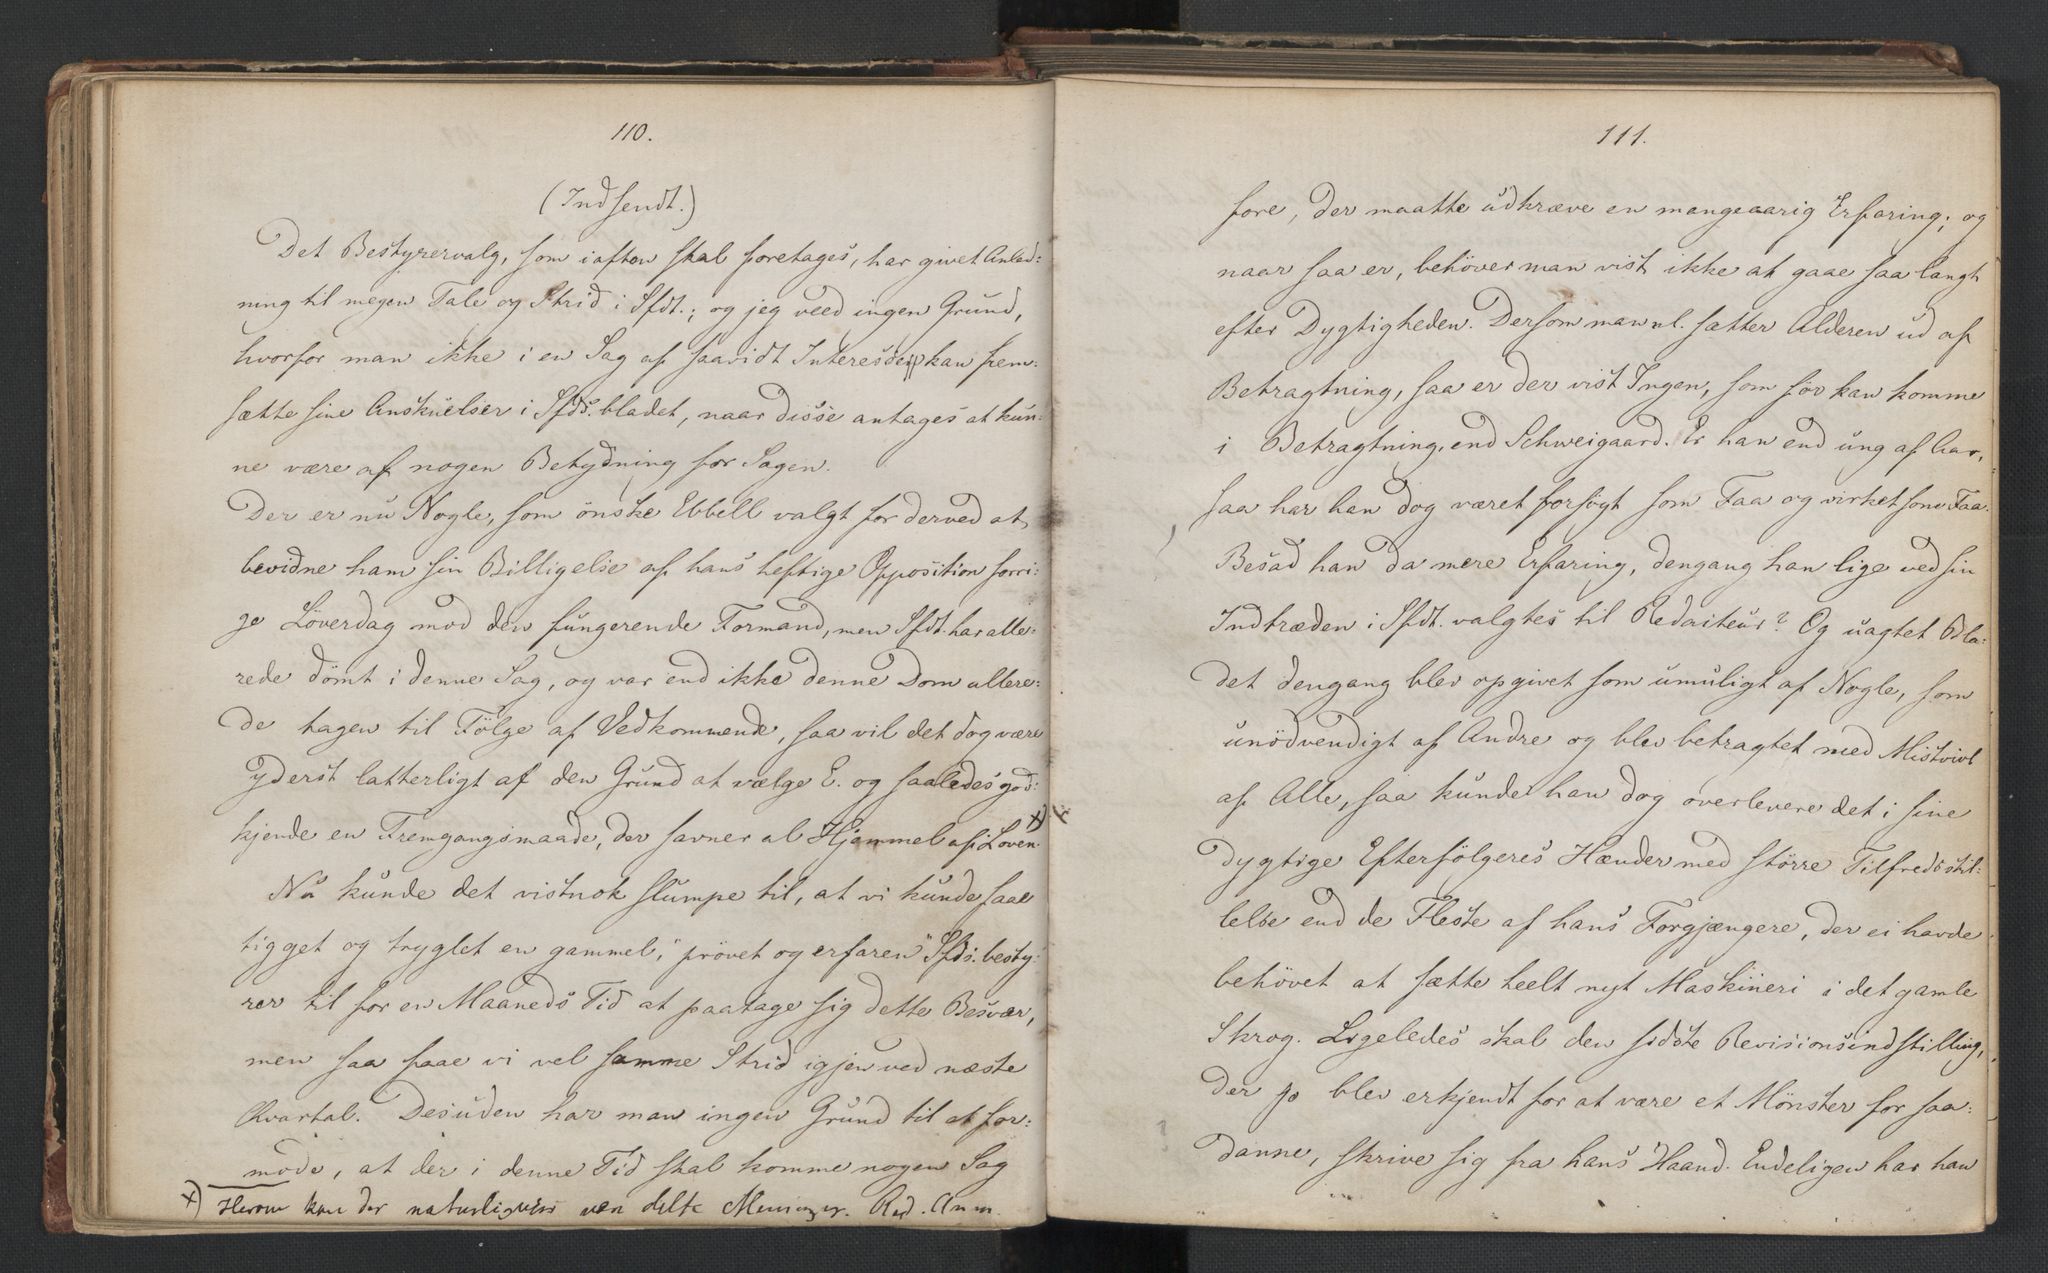 110.
(Indsendt.)
Det Bestyrervalg, som iaften skal foretages, har givet Anled:
ning til megen Tale og Strid i Sfdt.; og jeg veed ingen Grund,
hvorfor man ikke i en Sag af saavidt Interesse kan frem:
sætte sine Anskuelser i Sfds.bladet, naar disse antages at kun:
ne være af nogen Betydning for Sagen.
Der er nu Nogle, som önske Ebbell valgt for derved at
bevidne ham sin Billigelse af hans heftige Opposition forri:
ge Löverdag mod den fungerende Formand, men Sfdt. har alle:
rede dömt i denne Sag, og var end ikke denne Dom allere:
de tagen til Fölge af Vedkommende, saa vil det dog være
yderst latterligt af den Grund at vælge E. og saaledes god:
kjende en Fremgangsmaade, der savner al Hjemmel af Loven. x)
Nu kunde det vistnok slumpe til, at vi kunde faae
tigget og tryglet en gammel, "prövet og erfaren" Sfds.besty:
rer til for en Maaneds Tid at paatage sig dette Besvær,
men saa faae vi vel samme Strid igjen ved næste
Kvartal. Desuden har man ingen Grund til at for:
mode, at der i denne Tid skal komme nogen Sag
x) Herom kan der naturligviis være delte Meninger. Red. Anm.
111.
fore, der maatte udkræve en mangeaarig Erfaring; og
naar saa er, behöver man vist ikke at gaae saa langt
efter Dygtigheden. Dersom man nl. sætter Alderen ud af
Betragtning, saa er der vist Ingen, som för kan komme
i Betragtning, end Schweigaard. Er han end ung af Aar,
saa har han dog været forsögt som Faa og virket som Faa.
Besad han da mere Erfaring, dengang han lige ved sin
Indtræden i Sfdt. valgtes til Redacteur? Og uagtet Bla:
det dengang blev opgivet som umuligt af Nogle, som
unödvendigt af Andre og blev betragtet med Mistvivl
af Alle, saa kunde han dog overlevere det i sine
dygtige Efterfölgeres Hænder med större Tilfredsstil:
lelse end de Fleste af hans Forgjængere, der ei havde
behövet at sætte heelt nyt Maskineri i det gamle
Skrog. Ligeledes skal den sidste Revisionsindstilling,
der jo blev erkjendt for at være et Mönster for saa:
danne, skrive sig fra hans Haand. Endeligen har han